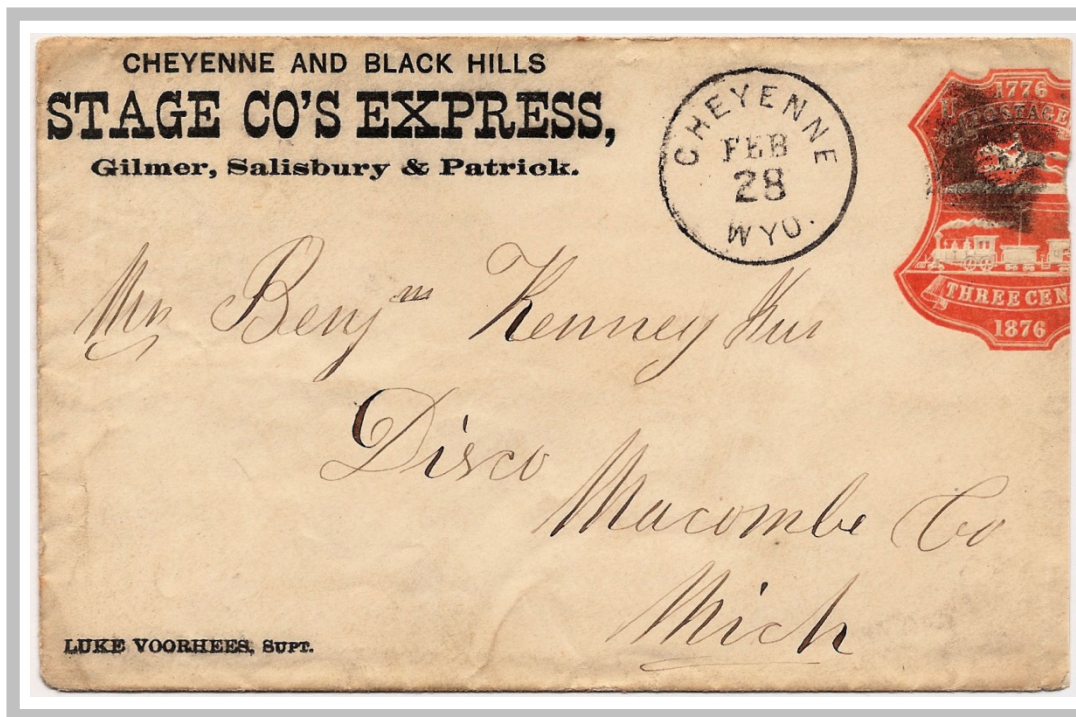 CHEYENNE AND BLACK HILLS
STAGE CO'S EXPRESS,
Gilmer, Salisbury & Patrick.
CHEYENNE
FEB
28
WYO.
1776
POSTAGE
THREE CEN
1876
Mr Benjm Kenney
Disco
Macombe Co
Mich
LUKE VOORHEES, SUPT.